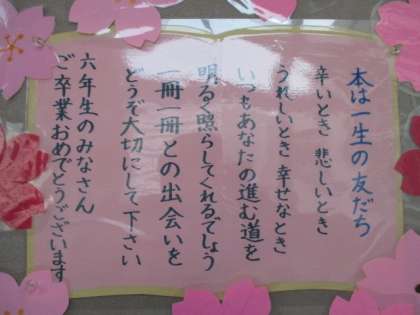 本は一生の友だち
辛いとき 悲しいとき
うれしいとき 幸せなとき
いつもあなたの進む道を
明るく照らしてくれるでしょう
一冊一冊との出会いを
どうぞ大切にして下さい
六年生のみなさん
ご卒業おめでとうございます